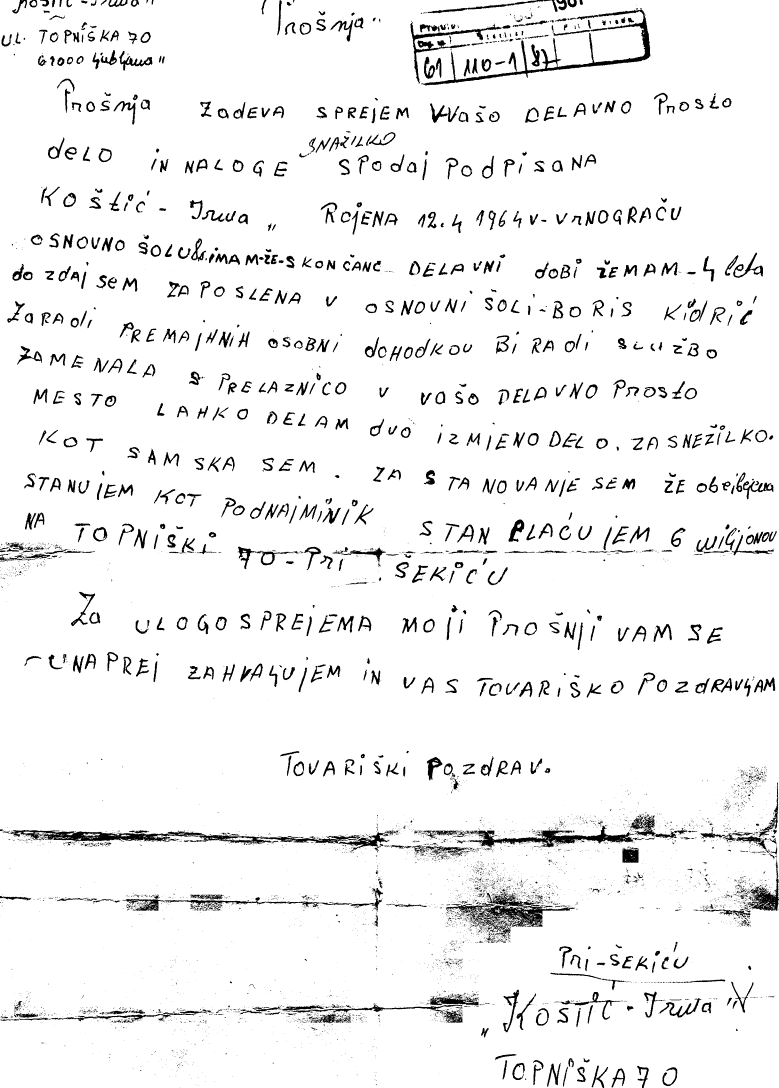 KOŠTIĆ - Irma"
UL. TOPNIŠKA 70
61000 ljubljana"
"Prošnja"
61 110-1 87
Prošnja ZadEVA SPREJEM V VAŠO DELAVNO Prosto
deLO IN NALOGE SNAŽILKO SPOdaj POdPiSANA
KOŠtić - Irma " ROJENA 12.4 1964 V- VrNOGRAČU
OSNOVNO ŠOLU IMAM-ŽE-SKONČANE DELAVNI dOBi ŽEMAM-4 leta
do zdaj SEM ZAPOSLENA V OSNOVNI ŠOLI-BORIS KidRIČ
ZaRAdi PREMAJHNIH OSOBNI dCHODKOU Bi RAdi SLUŽBO
ZAMENALA S PRELAZNICO V VAŠO DELAVNO Prosto
MESTO LAHKO DELAM dvo IZMJENO DELO. ZA SNEŽILKO.
KOT SAMSKA SEM. ZA STANOVANJE SEM ŽE
STANUJEM KOT POdNAJMINIK STAN PLAĆUJEM 6 milijonou
NA TOPNIŠKI 70-Pri ŠEKIĆU
Za ULOGO SPREJEMA MOJI ProŠNJI VAM SE
UNAPREJ ZAHVALJUJEM IN VAS TOVARIŠKO POZdRAVLJAM
TOVARIŠKI POZdRAV.
Pri-ŠEKIĆU
"KOŠTIĆ - Irma"
TOPNIŠKA 70